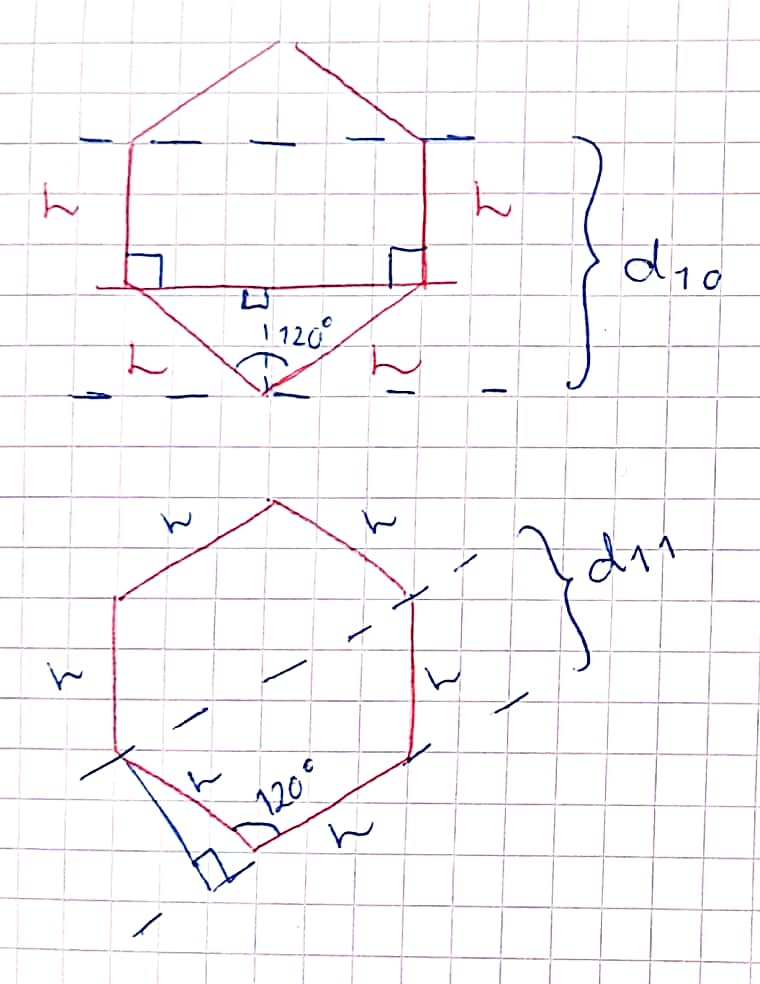 h h
d10
120°
h h
h h
d11
h h
h 120°
h